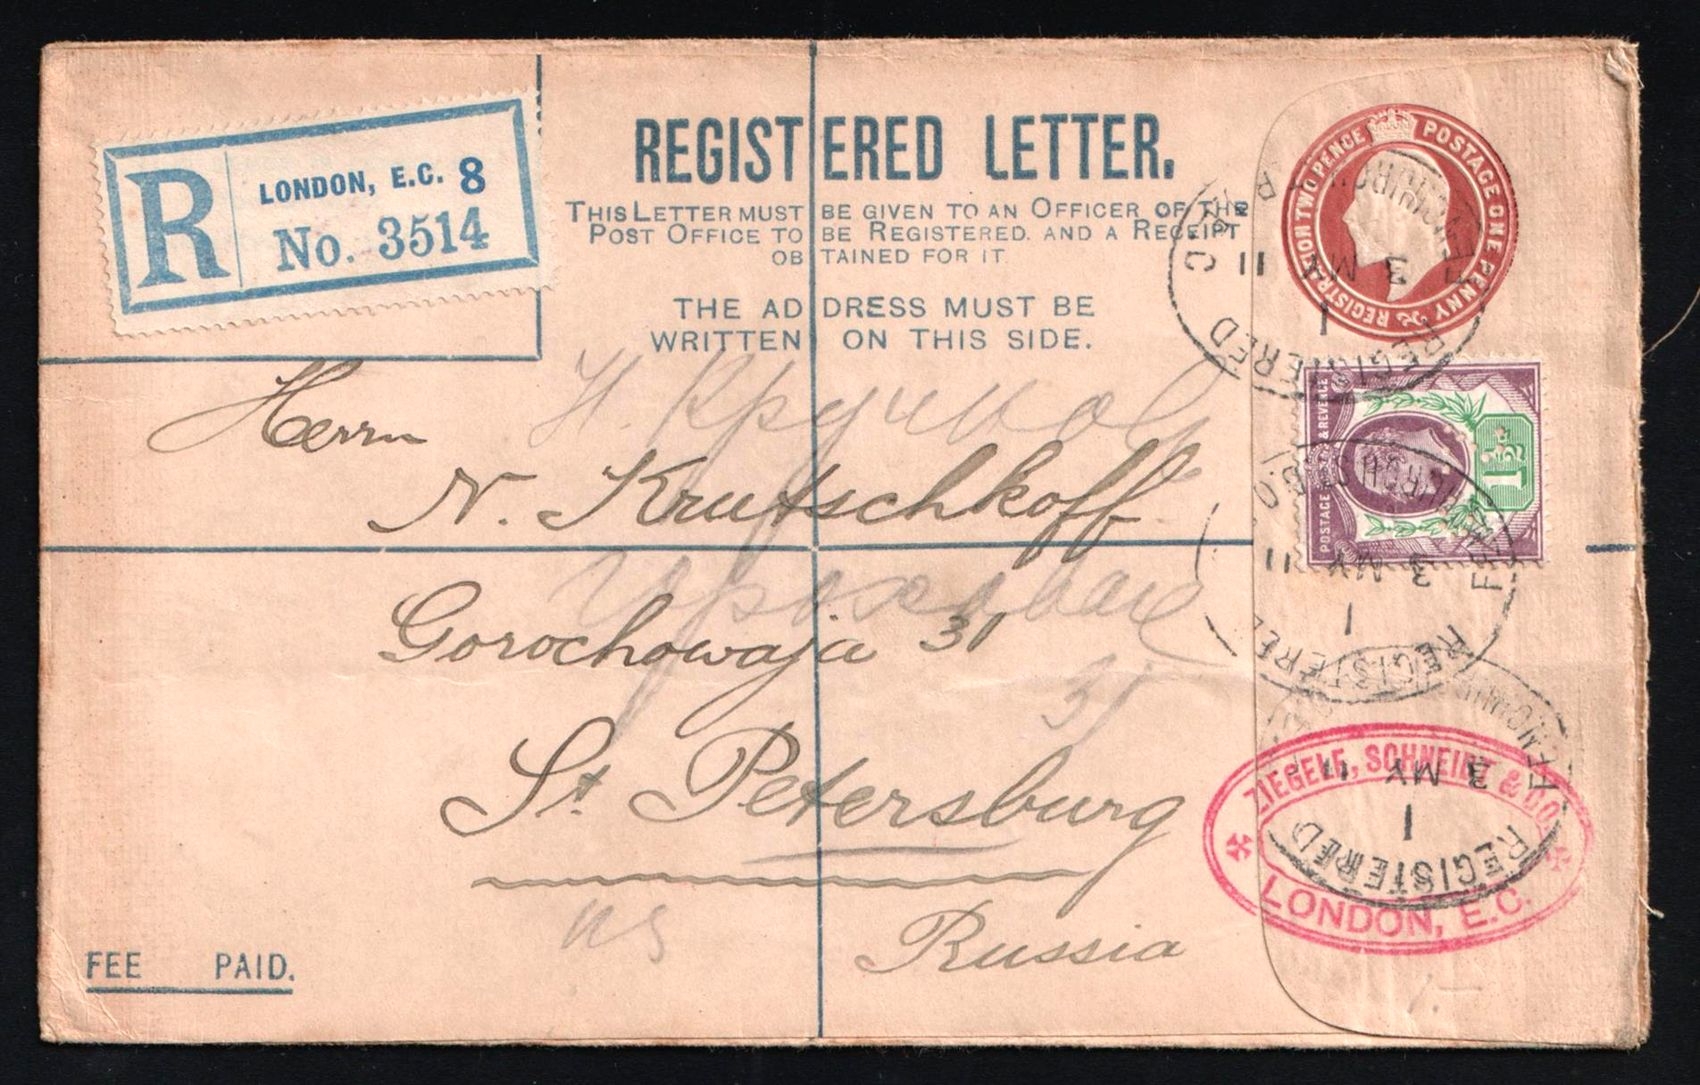 R
LONDON, E.C. 8
No. 3514
REGISTERED LETTER.
THIS LETTER MUST BE GIVEN TO AN OFFICER OF THE
POST OFFICE TO BE REGISTERED. AND A RECEIPT
OBTAINED FOR IT.
THE ADDRESS MUST BE
WRITTEN ON THIS SIDE.
REGISTRATION TWO PENCE POSTAGE ONE PENNY &
POSTAGE & REVENUE
1½d
REGISTERED
FENCHURCH
3 MY 11
1
REGISTERED
3 MY 11
1
REGISTERED
3 MY 11
1
Herrn
N. Krutschkoff
Gorochowaja 31
St. Petersburg
Russia
31
ZIEGELE, SCHNEIDT & CO.
LONDON, E.C.
FEE PAID.